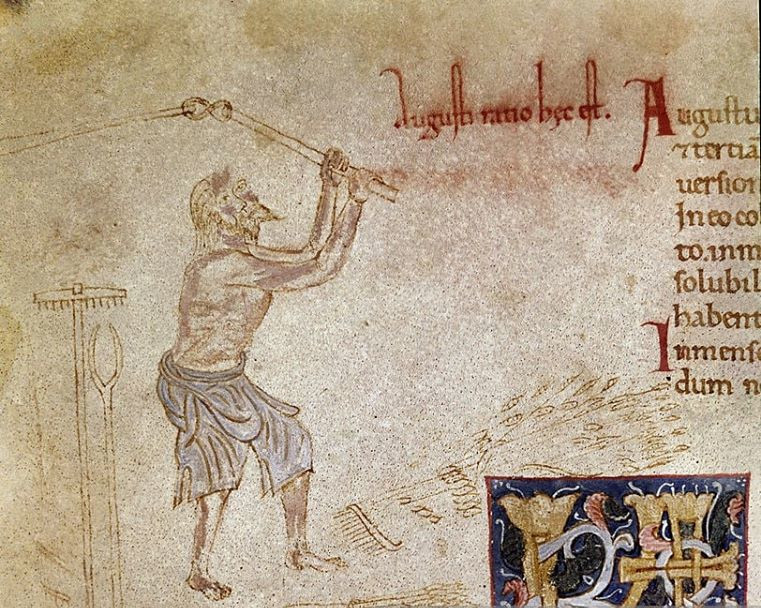 Augusti ratio hęc est.
Augustu
⁊ tertiā
uersion
In eo co
to. in m
solubil
habent
Inmense
dum n